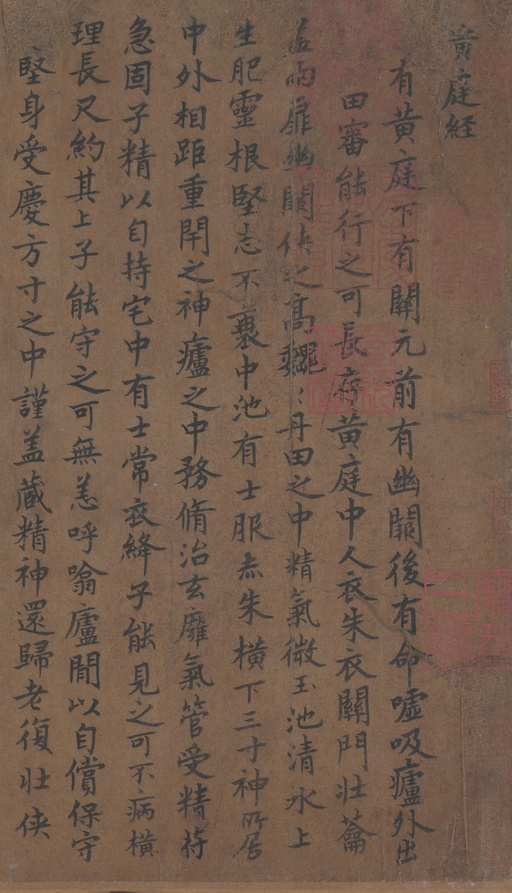 黄庭経
有黄庭下有關元前有幽闕後有命嘘吸廬外出
田審能行之可長存黄庭中人衣朱衣關門壮蘥
盖两扉幽闕侠之高巍〻丹田之中精氣微玉池清水上
生肥靈根堅志不衰中池有士服赤朱横下三寸神所居
中外相距重閇之神廬之中務脩治玄廱氣管受精苻
急固子精以自持宅中有士常衣絳子能見之可不病横
理長尺約其上子能守之可無恙呼噏廬間以自償保守
堅身受慶方寸之中謹盖蔵精神還歸老復壮侠